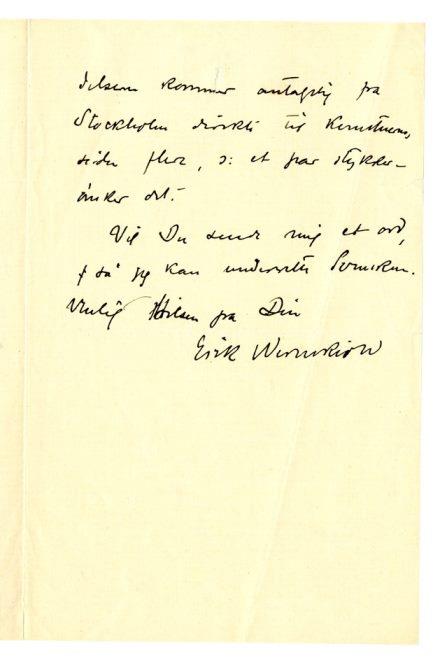 kommer antaglig fra
Stockholm direkte til
siden flere, ɔ: et par stykker –
ønsker det.
Vil Du sende mig et ord,
så jeg kan underrette Svensken.
Venlig Hilsen fra Din
Erik Werenskiold